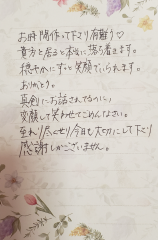 お時間作って下さり有難う♡
貴方と居ると本当に落ち着きます。
穏やかにずっと笑顔でいられます。
ありがとう。
真剣にお話されてるのに、
変顔して笑わせてごめんなさい。
至れり尽くせり今日も大切にして下さり
感謝しかございません。